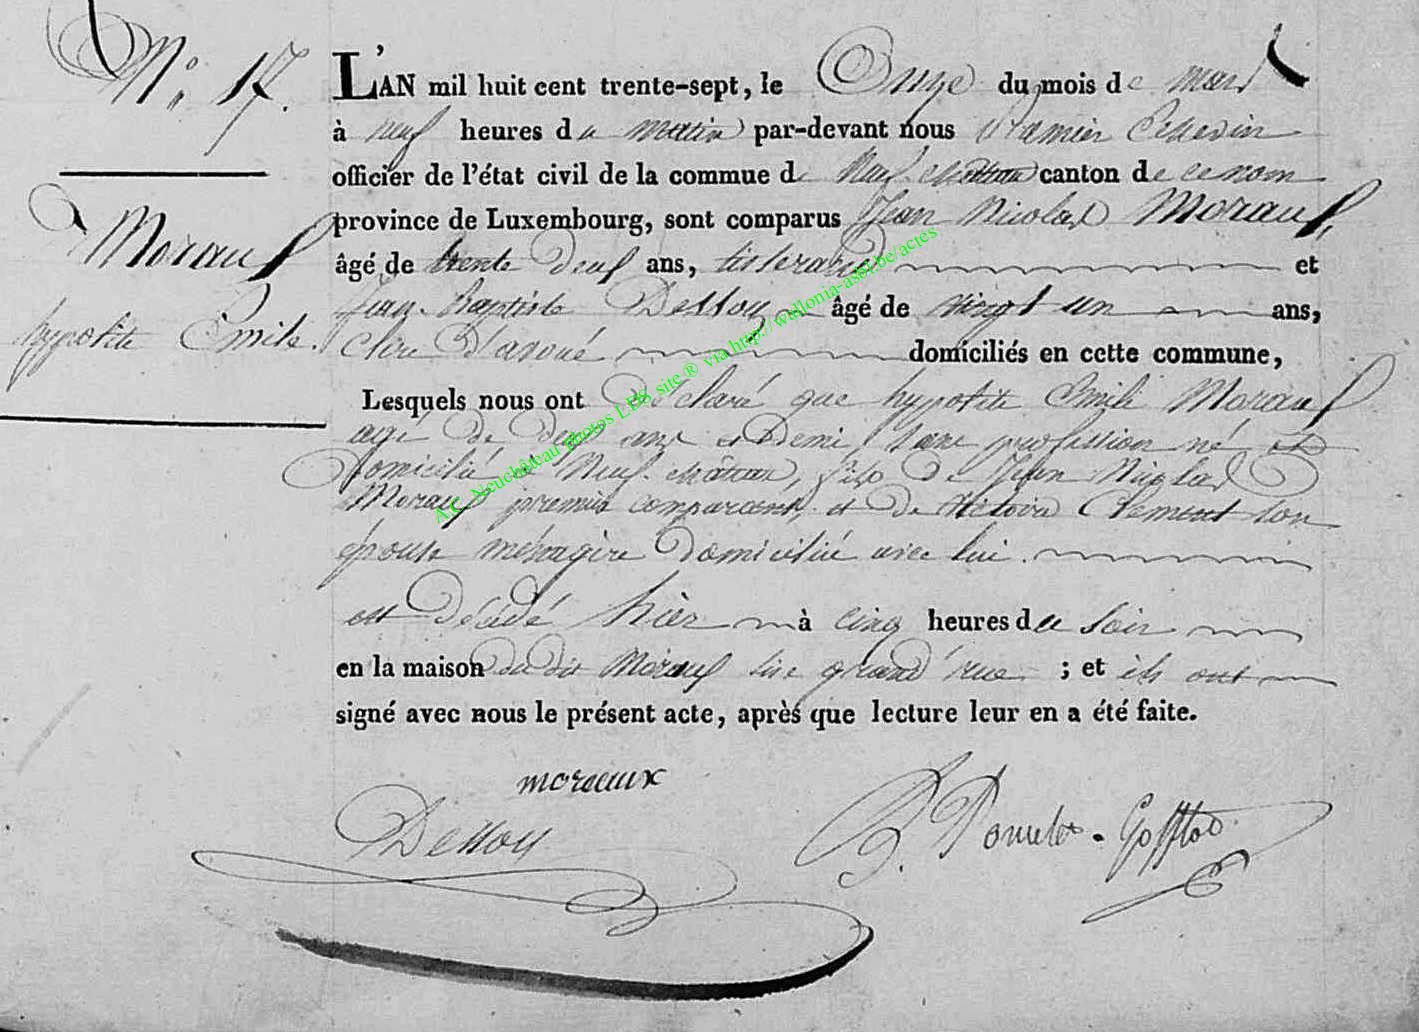 N.° 17.
Moraux
hypolite Emile.
L'AN mil huit cent trente-sept, le Onze du mois de mars
à neuf heures du matin par-devant nous Premier Echevin
officier de l'état civil de la commue de Neufchâteau canton de ce nom
province de Luxembourg, sont comparus Jean Nicolas Moraux,
âgé de trente deux ans, tisserand et
Jean-Baptiste Dessoy âgé de vingt un ans,
Clerc d'avoué domiciliés en cette commune,
Lesquels nous ont déclaré que hypolite Emile Moraux
agé de deux ans et demi, sans profession né et
domicilié à Neufchâteau, fils de Jean Nicolas
Moraux premier comparant, et de Victoire Clement son
épouse ménagère domiciliée avec lui.
est décédé hier à cinq heures du soir
en la maison du dit Moraux sise grand'rue ; et ils ont
signé avec nous le présent acte, après que lecture leur en a été faite.
moreaux
Dessoy
A.C. Neuchâteau photos LDS site ® via http://wallonia-asbl.be/actes